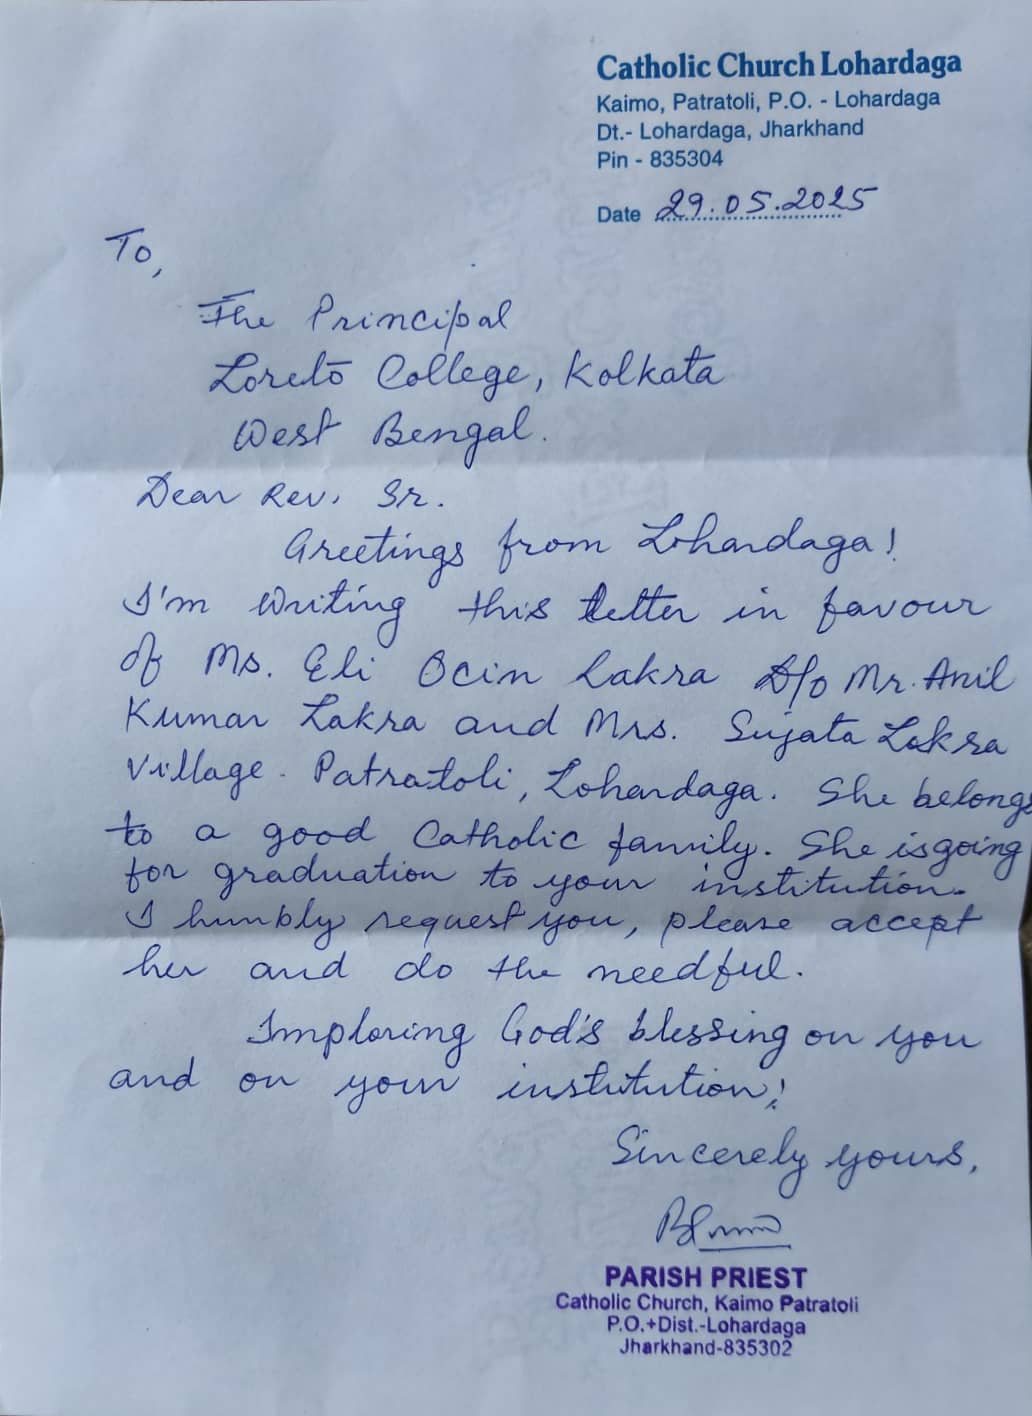 Catholic Church Lohardaga
Kaimo, Patratoli, P.O. - Lohardaga
Dt.- Lohardaga, Jharkhand
Pin - 835304
Date 29.05.2025
To,
The Principal
Loreto College, Kolkata
West Bengal.
Dear Rev. Sr.
Greetings from Lohardaga!
I'm writing this letter in favour
of Ms. Eli Ocin Lakra D/o Mr. Anil
Kumar Lakra and Mrs. Sujata Lakra
Village - Patratoli, Lohardaga. She belongs
to a good Catholic family. She is going
for graduation to your institution.
I humbly request you, please accept
her and do the needful.
Imploring God's blessing on you
and on your institution!
Sincerely yours,
PARISH PRIEST
Catholic Church, Kaimo Patratoli
P.O.+Dist.-Lohardaga
Jharkhand-835302